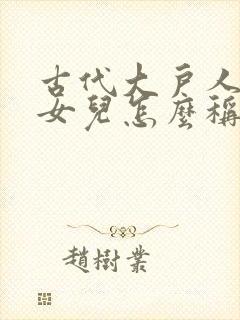 古代大戶人
女兒怎麼稱
趙樹業